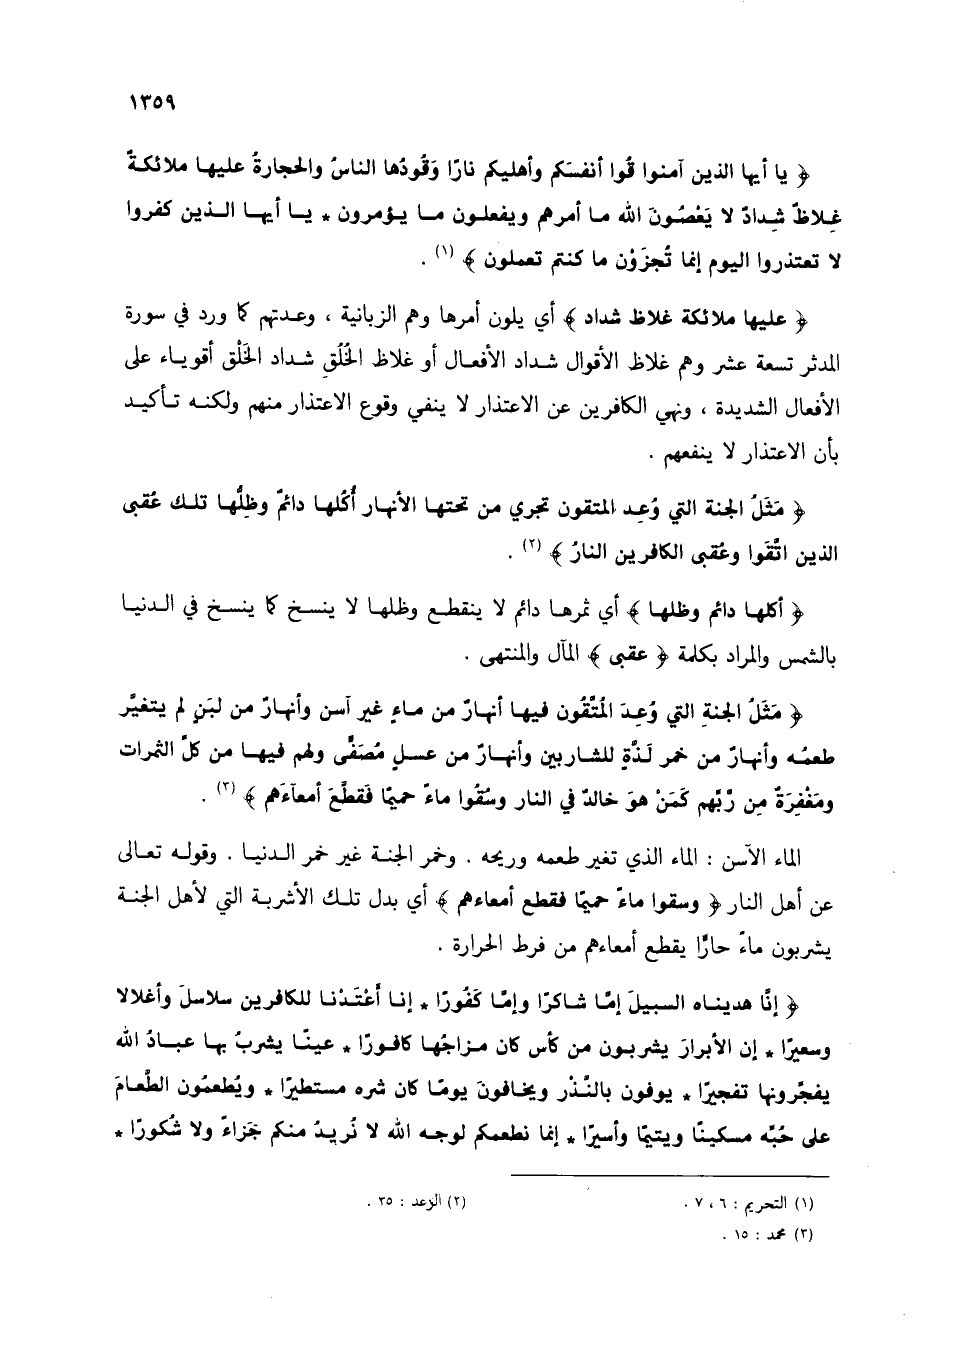 ١٣٥٩
﴿ يا أيها الذين آمنوا قُوا أنفسَكم وأهليكم نارًا وَقُودُها الناسُ والحجارةُ عليها ملائكةٌ
غِلاظٌ شِدادٌ لا يَعْصُونَ الله ما أمرهم ويفعلون ما يؤمرون * يا أيها الذين كفروا
لا تعتذروا اليوم إنما تُجزَوْن ما كنتم تعملون ﴾ (١) .
﴿ عليها ملائكة غلاظ شداد ﴾ أي يلون أمرها وهم الزبانية ، وعدتهم كما ورد في سورة
المدثر تسعة عشر وهم غلاظ الأقوال شداد الأفعال أو غلاظ الخُلُقِ شداد الخَلْق أقوياء على
الأفعال الشديدة ، ونهي الكافرين عن الاعتذار لا ينفي وقوع الاعتذار منهم ولكنه تأكيد
بأن الاعتذار لا ينفعهم .
﴿ مَثَلُ الجنة التي وُعِد المتقون تجري من تحتها الأنهار أُكُلها دائمٌ وظِلُّها تلك عُقبى
الذين اتَّقَوا وعُقبى الكافرين النارُ ﴾ (٢) .
﴿ أكلها دائم وظلها ﴾ أي ثمرها دائم لا ينقطع وظلها لا ينسخ كما ينسخ في الدنيا
بالشمس والمراد بكلمة ﴿ عقبى ﴾ المآل والمنتهى .
﴿ مَثَلُ الجنةِ التي وُعِدَ المُتَّقُون فيها أنهارٌ من ماءٍ غير آسن وأنهارٌ من لبَنٍ لم يتغيَّر
طعمُه وأنهارٌ من خمر لَذَّةٍ للشاربين وأنهارٌ من عسلٍ مُصَفًّى ولهم فيها من كلِّ الثمرات
ومَغْفِرَةٌ مِن رَّبِّهم كَمَنْ هوَ خالدٌ في النار وسُقُوا ماءً حميمًا فَقطَّعَ أمعآءَهم ﴾ (٣) .
الماء الآسن : الماء الذي تغير طعمه وريحه . وخمر الجنة غير خمر الدنيا . وقوله تعالى
عن أهل النار ﴿ وسقوا ماءً حميمًا فقطع أمعاءهم ﴾ أي بدل تلك الأشربة التي لأهل الجنة
يشربون ماءً حارًّا يقطع أمعاءهم من فرط الحرارة .
﴿ إنَّا هديناه السبيلَ إمَّا شاكرًا وإمَّا كَفُورًا * إنا أَعْتَدْنا للكافرين سلاسلَ وأغلالا
وسعيرًا * إن الأبرارَ يشربون من كأس كان مزاجُها كافورًا * عينًا يشربُ بها عبادُ الله
يفجِّرونها تفجيرًا * يوفون بالنَّذْر ويخافونَ يومًا كان شره مستطيرًا * ويُطعمُون الطَّعامَ
على حُبِّه مسكينًا ويتيمًا وأسيرًا * إنما نطعمكم لوجه الله لا نُريدُ منكم جَزاءً ولا شُكورًا *
(١) التحريم : ٦ ، ٧ .
(٢) الرعد : ٣٥ .
(٣) محمد : ١٥ .